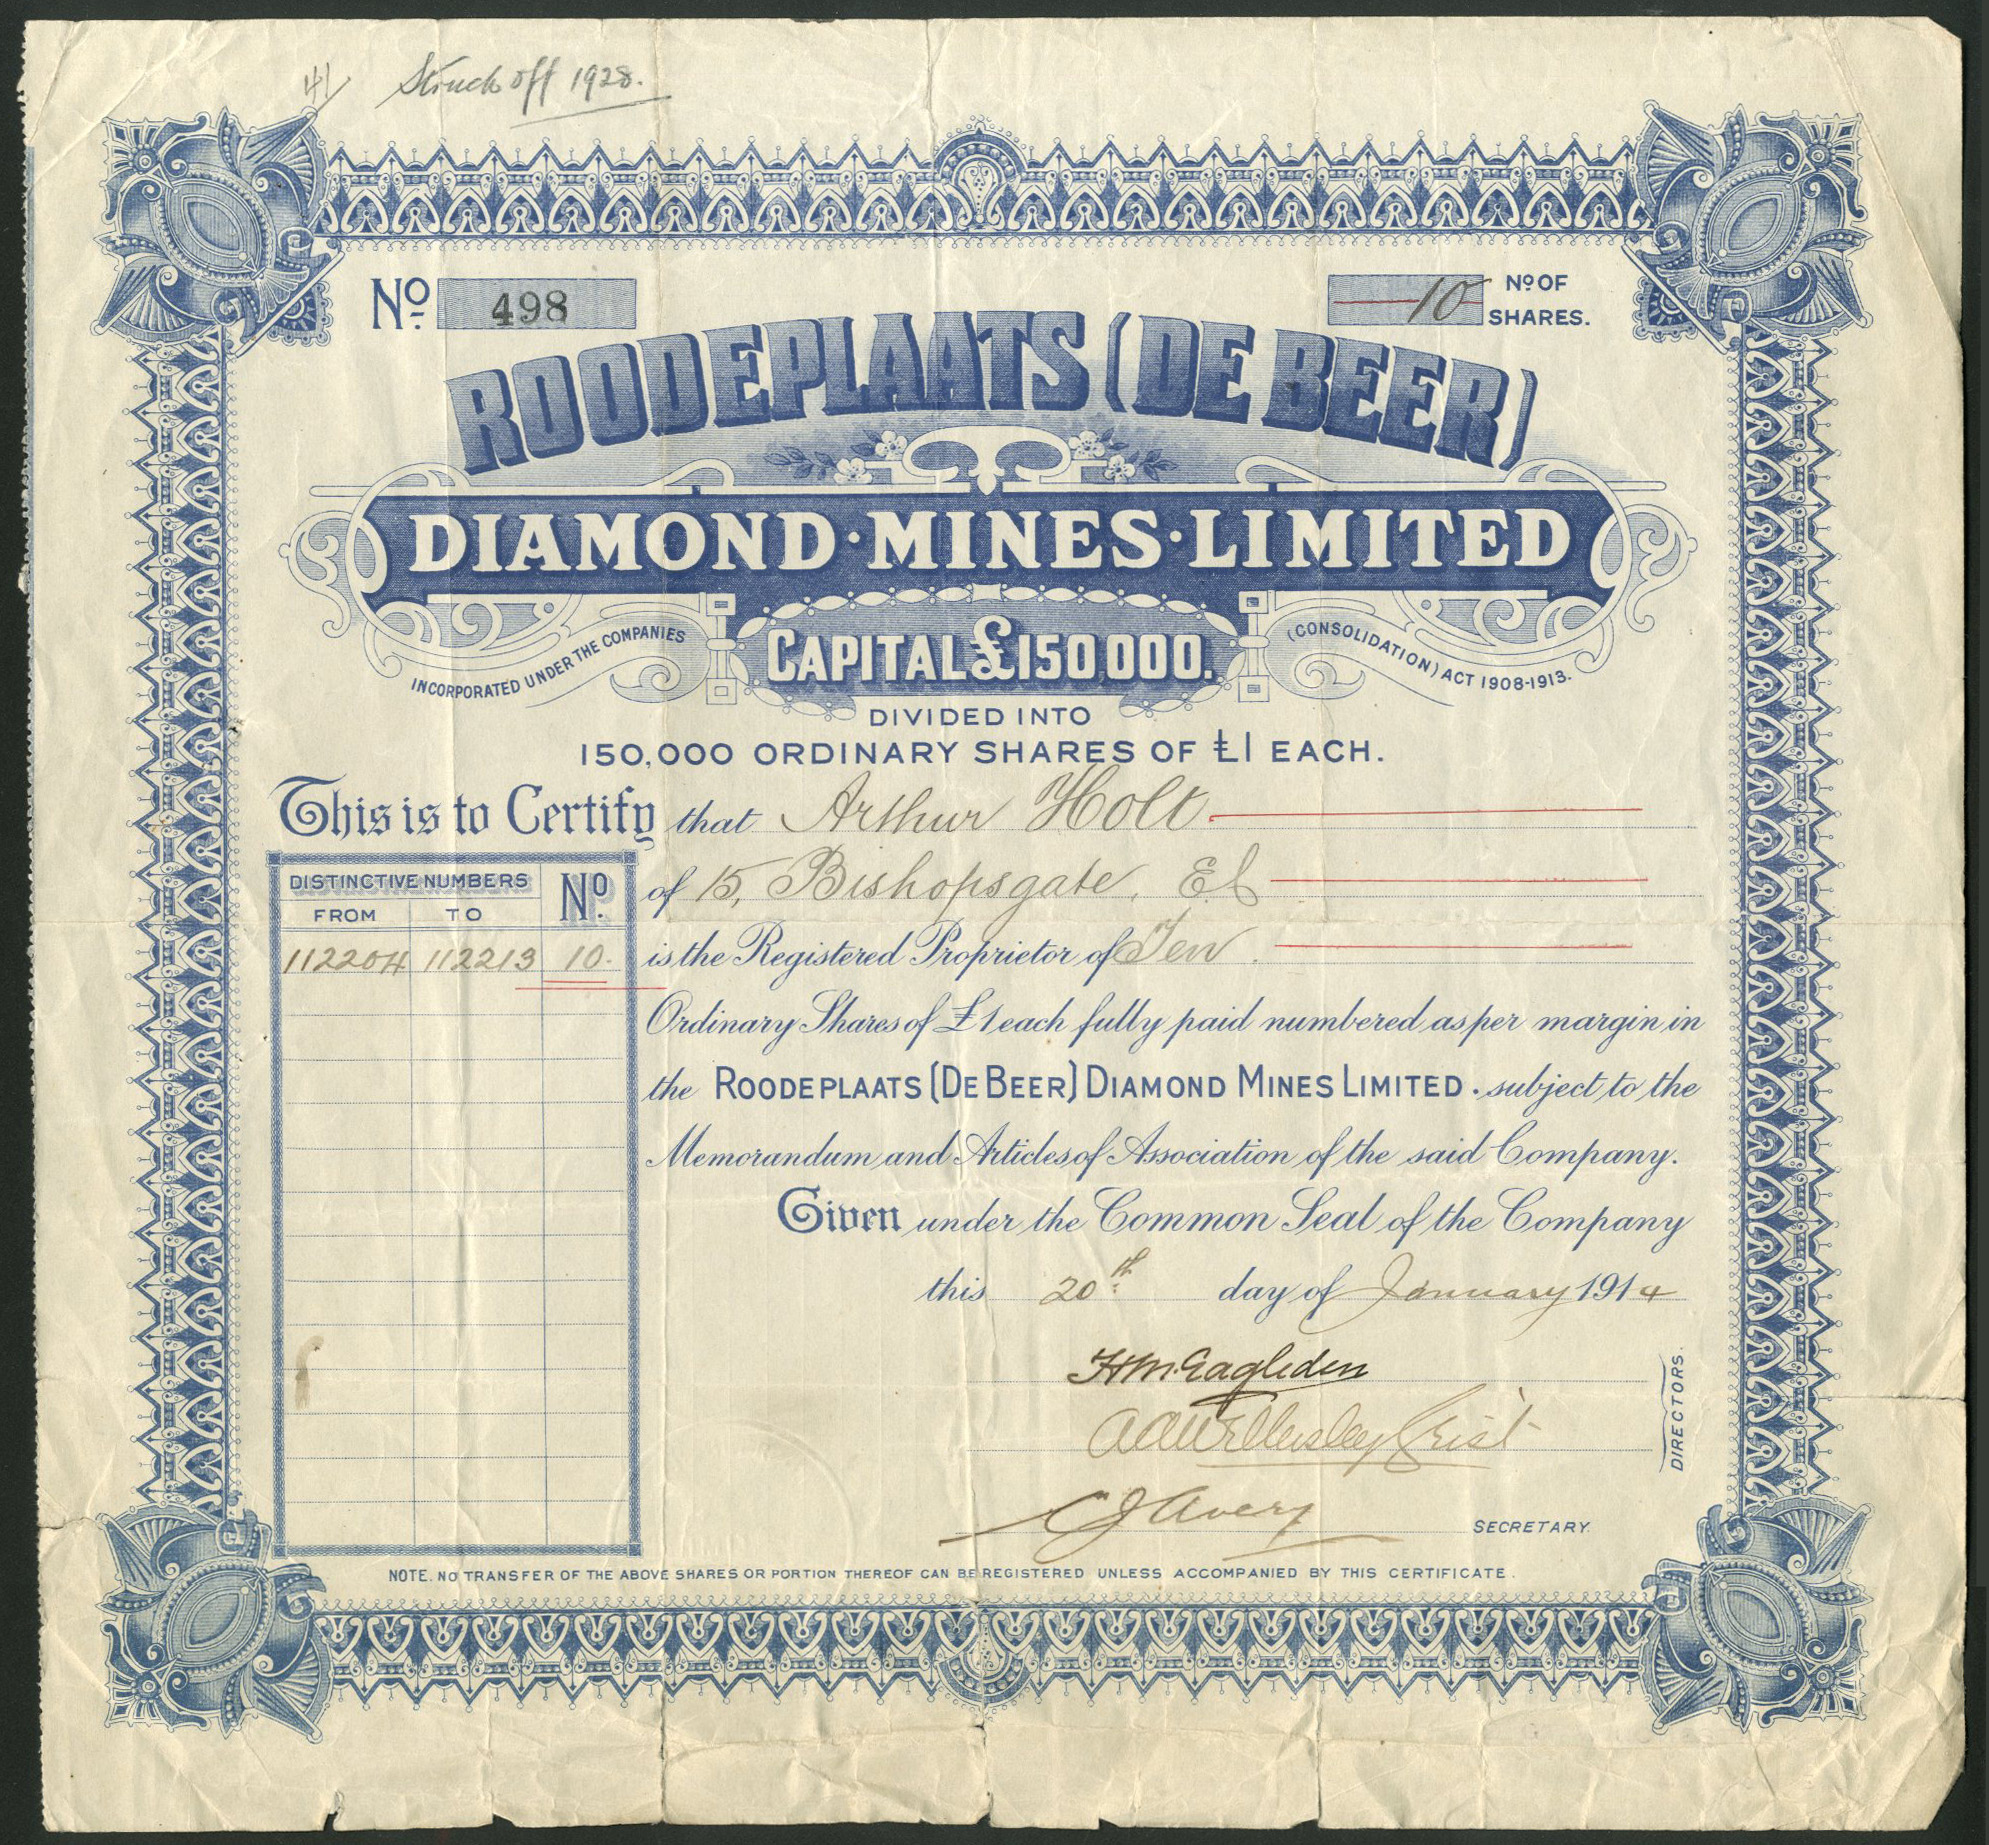 Struck off 1928.
No. 498
10 No. OF SHARES.
ROODEPLAATS (DE BEER)
DIAMOND · MINES · LIMITED
INCORPORATED UNDER THE COMPANIES (CONSOLIDATION) ACT 1908-1913.
CAPITAL £150,000.
DIVIDED INTO
150,000 ORDINARY SHARES OF £1 EACH.
This is to Certify that Arthur Holt
of 15, Bishopsgate, E.C
is the Registered Proprietor of Ten
Ordinary Shares of £1 each fully paid numbered as per margin in
the ROODEPLAATS (DE BEER) DIAMOND MINES LIMITED. subject to the
Memorandum and Articles of Association of the said Company.
DISTINCTIVE NUMBERS No.
FROM TO
112204 112213 10.
Given under the Common Seal of the Company
this 20th day of January 1914
H M Eagleden
Wellesley Crist
DIRECTORS.
C J Avery SECRETARY.
NOTE. NO TRANSFER OF THE ABOVE SHARES OR PORTION THEREOF CAN BE REGISTERED UNLESS ACCOMPANIED BY THIS CERTIFICATE.